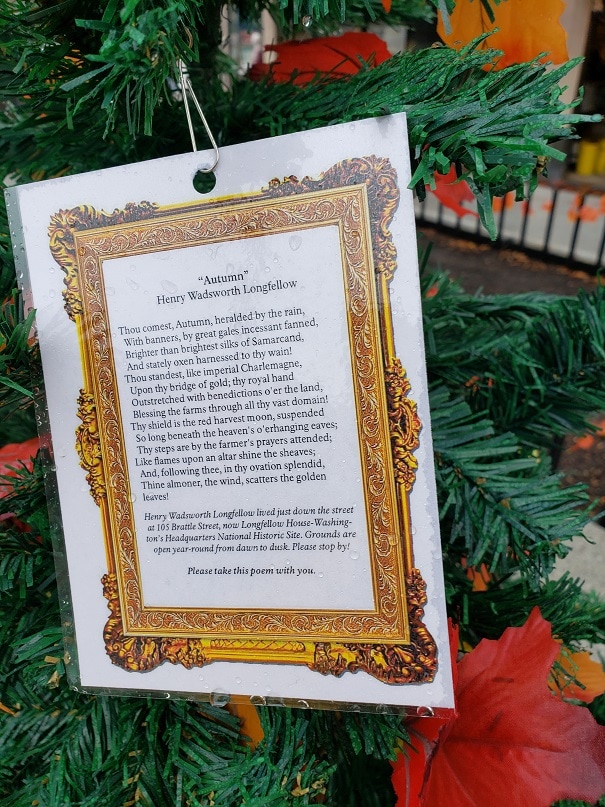 “Autumn”
Henry Wadsworth Longfellow
Thou comest, Autumn, heralded by the rain,
With banners, by great gales incessant fanned,
Brighter than brightest silks of Samarcand,
And stately oxen harnessed to thy wain!
Thou standest, like imperial Charlemagne,
Upon thy bridge of gold; thy royal hand
Outstretched with benedictions o'er the land,
Blessing the farms through all thy vast domain!
Thy shield is the red harvest moon, suspended
So long beneath the heaven's o'erhanging eaves;
Thy steps are by the farmer's prayers attended;
Like flames upon an altar shine the sheaves;
And, following thee, in thy ovation splendid,
Thine almoner, the wind, scatters the golden
leaves!
Henry Wadsworth Longfellow lived just down the street
at 105 Brattle Street, now Longfellow House-Washing-
ton's Headquarters National Historic Site. Grounds are
open year-round from dawn to dusk. Please stop by!
Please take this poem with you.